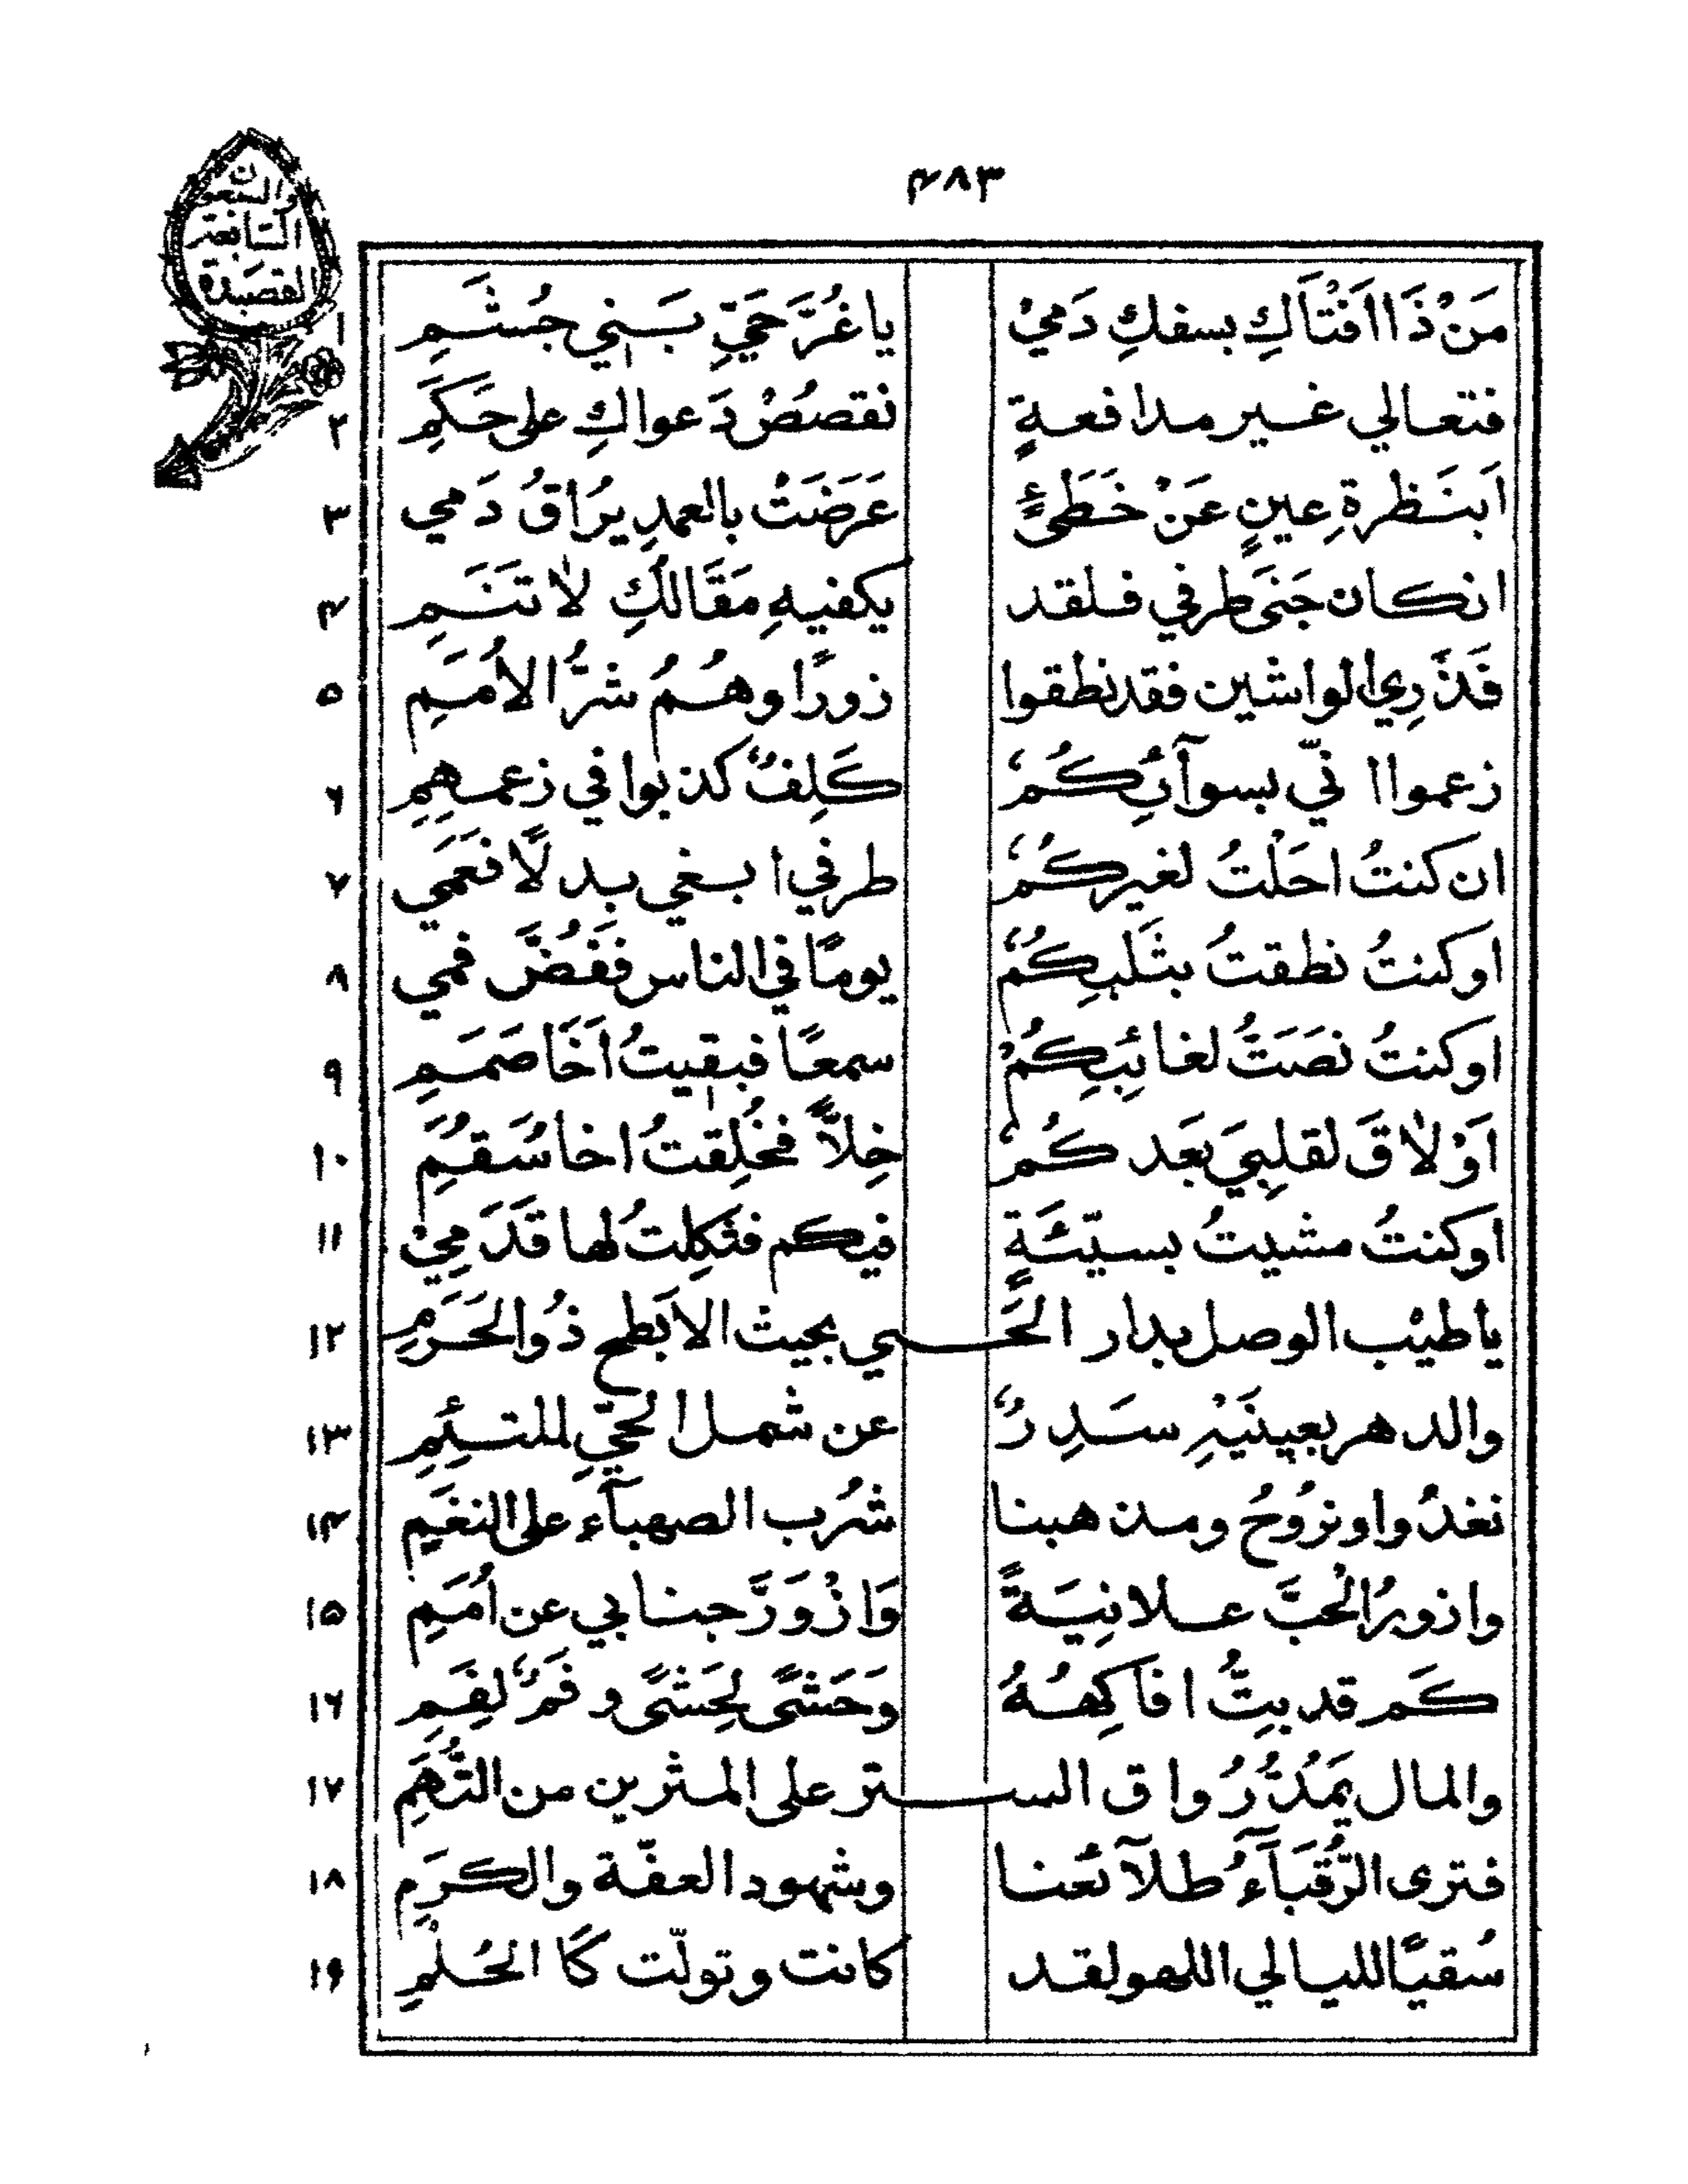 ۴۸۳
القصيدة
السابعة
والسبعون
مَنْ ذَا اَفْتَاكِ بسفكِ دَمِيْ يا غُرَّ حَيِّ بَنِي جُشَمِ ١
فتعالي غير مدافعةٍ نقصصُ دَعواكِ على حَكَمِ ٢
اَبنَظرةِ عينٍ عَنْ خَطَئٍ عَرَضَتْ بالعمدِ يُرَاقُ دَمي ٣
ان كان جَنَى طرفي فلقد يكفيهِ مَقَالُكِ لا تَنَمِ ۴
فَذَرِي الواشين فقد نطقوا زورًا وهُمُ شرُّ الأُمَمِ ۵
زعموا انّي بسوآئِكُمُ كَلِفٌ كذبوا في زعمهِمِ ۶
ان كنتُ احَلْتُ لغيركُمُ طرفي ابغي بدلًا فعَمَي ٧
او كنتُ نطقتُ بثَلبِكُمُ يومًا في الناس فَفُضَّ فمي ٨
او كنتُ نصَتُّ لغائبِكُمْ سمعًا فبقيتُ اَخَا صَمَمِ ٩
اَوْ لاقَ لقلبِيَ بَعدكُمُ خِلاًّ فخُلِقتُ اخا سُقُمِ ١٠
او كنتُ مشيتُ بسيّئَةٍ فيكم فثَكِلتُ لها قَدَمِيْ ١١
يا طيْب الوصل بدار الحَـي بحيث الاَبَطح ذُوالحَرَمِ ١٢
والدهر بعينَيْهِ سَدِرٌ عن شمل الحيِّ الملتئِمِ ١٣
نغدُوا ونرُوحُ ومذهبنا شُرب الصهبآء على النغَمِ ١۴
وازورُ الحْبَّ علانِيَةً وَازْوَرَّ جنابي عن اُمَمِ ١۵
كَم قد بِتُّ افاكِهُهُ وَحَشًى لِحَشًى وفَمٌ لِفَمِ ١۶
والمال يَمُدُّ رُواق الستر على المثرين من التُّهَمِ ١٧
فترى الرُّقبَآءَُ طلآئعنا وشهود العفّة والكرَمِ ١٨
سُقيًا لليالي اللهو لقد كانت وتولّت كَا الحُلْمِ ١۹